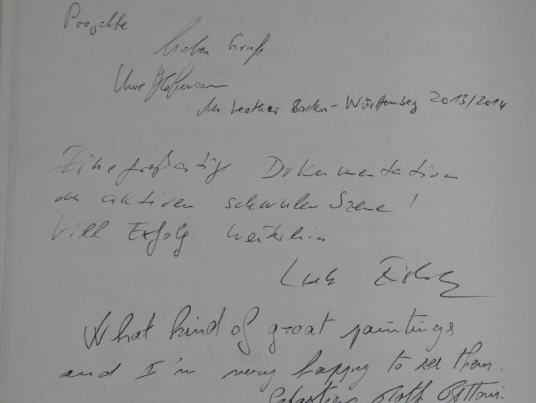 Projekte
lieben Gruß
Uwe
Mr Leather Baden-Württemberg 2013/2014
Eine großartige Dokumentation
der aktiven schwulen Szene!
Viel Erfolg weiterhin
What kind of great paintings
and I'm very happy to see them.